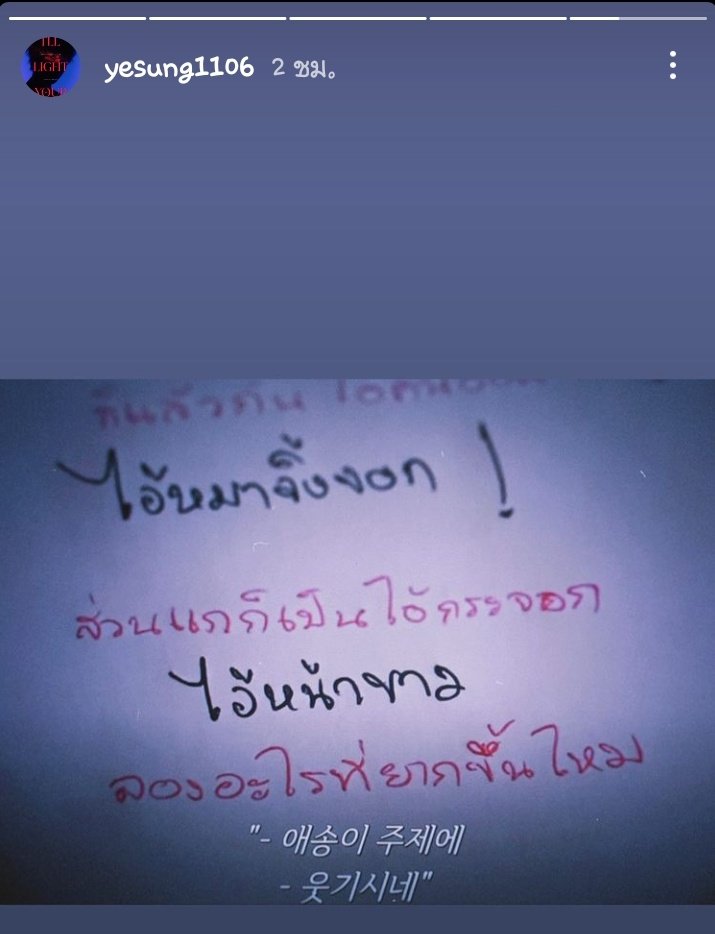 I'LL
LIGHT
YOUR
yesung1106 2 ชม.
ไอ้หมาจิ้งจอก !
ส่วนแกก็เป็นไอ้กระจอก
ไอ้หน้าขาว
ลองอะไรที่ยากขึ้นไหม
"- 애송이 주제에
- 웃기시네"